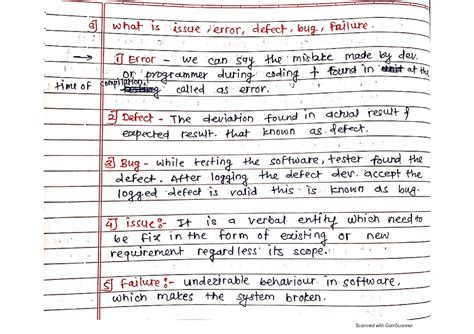 8) what is issue, error, defect, bug, failure.
→ 1) Error - we can say the mistake made by dev.
or programmer during coding & found in at the
time of compilation, called as error.
2) Defect - The deviation found in actual result &
expected result that known as defect.
3) Bug - while testing the software, tester found the
defect. After logging the defect dev. accept the
logged defect is valid this is known as bug.
4) issue:- It is a verbal entity which need to
be fix in the form of existing or new
requirement regardless its scope.
5) Failure:- undezirable behaviour in software,
which makes the system broken.
Scanned with CamScanner